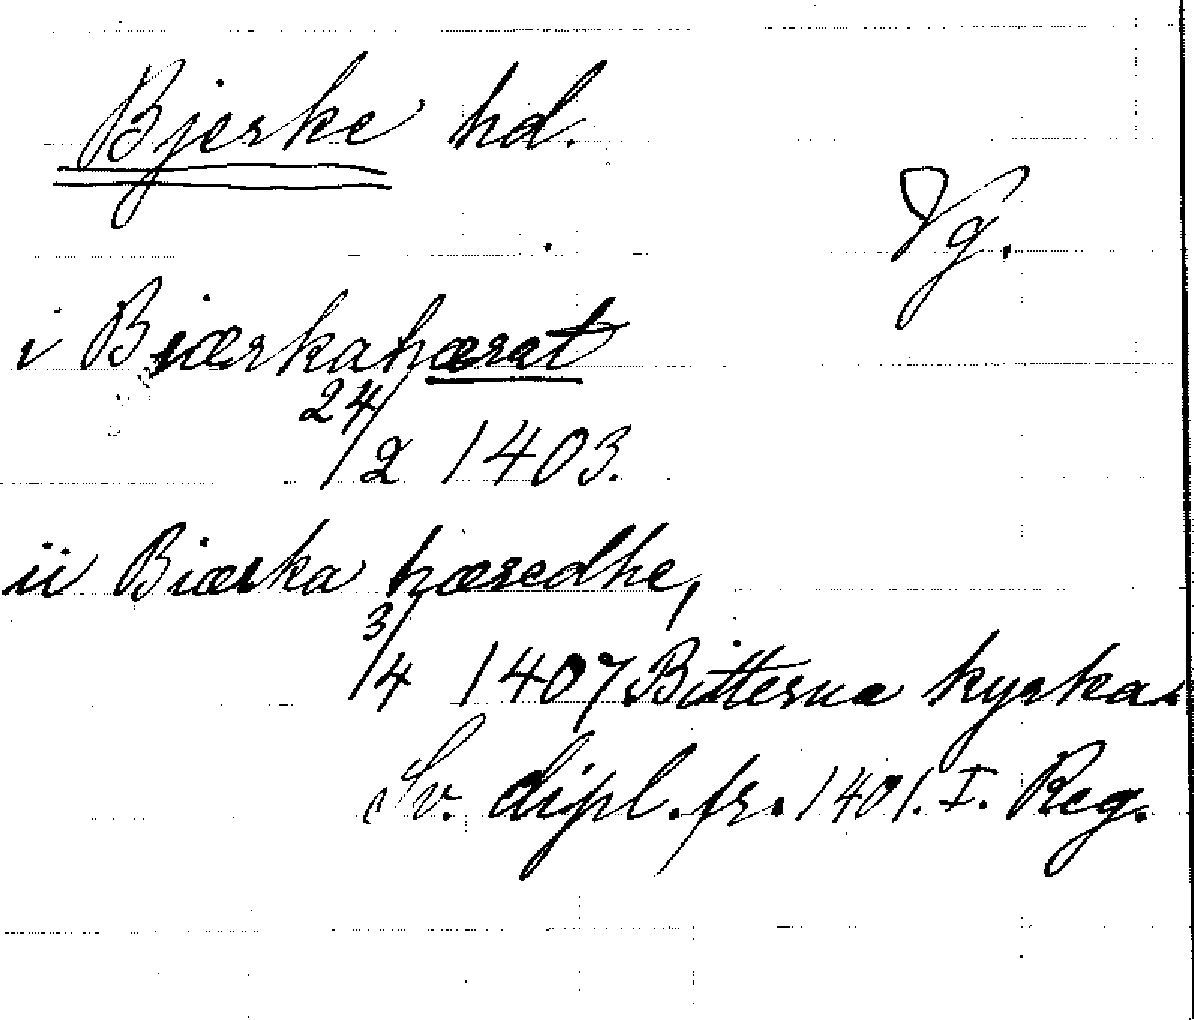 Bjerke hd.
Vg.
i Biærkahærat
24/2 1403.
ii Biærka hæredhe,
3/4 1407 Bitterna kyrka.
Sv. dipl. fr. 1401. I. Reg.